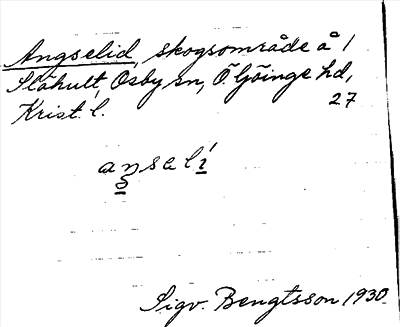 Angselid, skogsområde å 1
Slähult, Osby sn, Ö. Göinge hd,
Krist. l. 27
aŋsalí
Sigv. Bengtsson 1930.